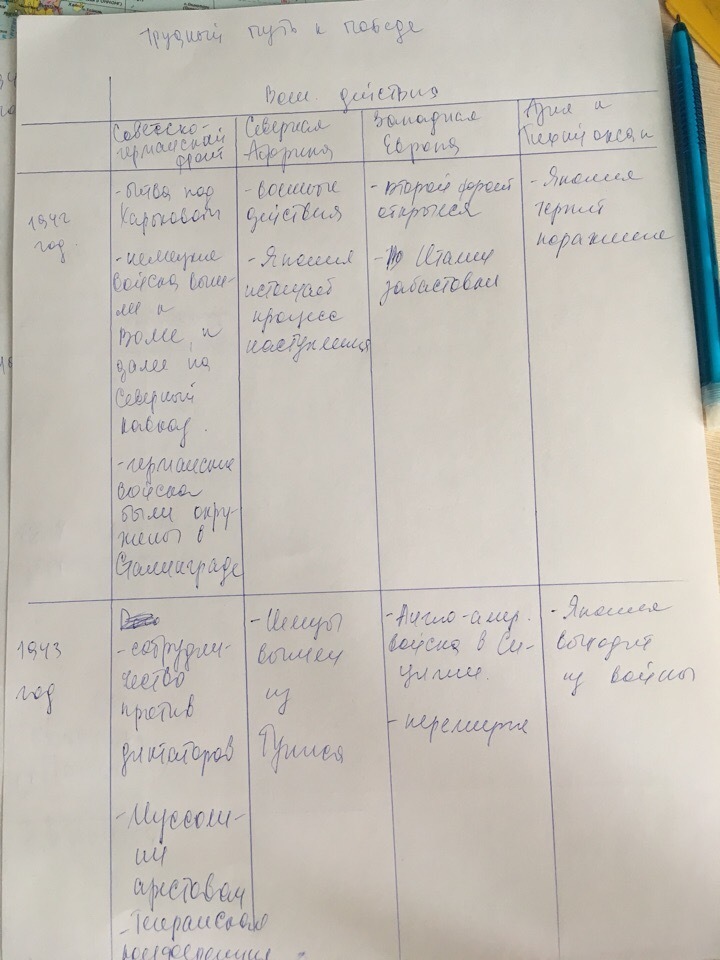 Трудный путь к победе
Воен. действия
Советско-
германский
фронт
Северная
Африка
Западная
Европа
Азия и
Тихий океан
1942
год.
-битва под
Харьковом
-немецкие
войска выш-
ли к
Волге, и
далее на
Северный
Кавказ.
-германские
войска
были окру-
жены в
Сталинграде
-военные
действия
-Япония
истощает
процесс
наступления
-второй фронт
открылся
- Италии
забастовки
-Япония
терпит
поражение
1943
год
-сотрудни-
чество
против
диктаторов
-Муссоли-
ни
арестован
-Тегеранская
конференция.
-Немцы
вышли
из
Туниса
-Англо-амер.
войска в Си-
цилии.
-перемирие
-Япония
выходит
из войны